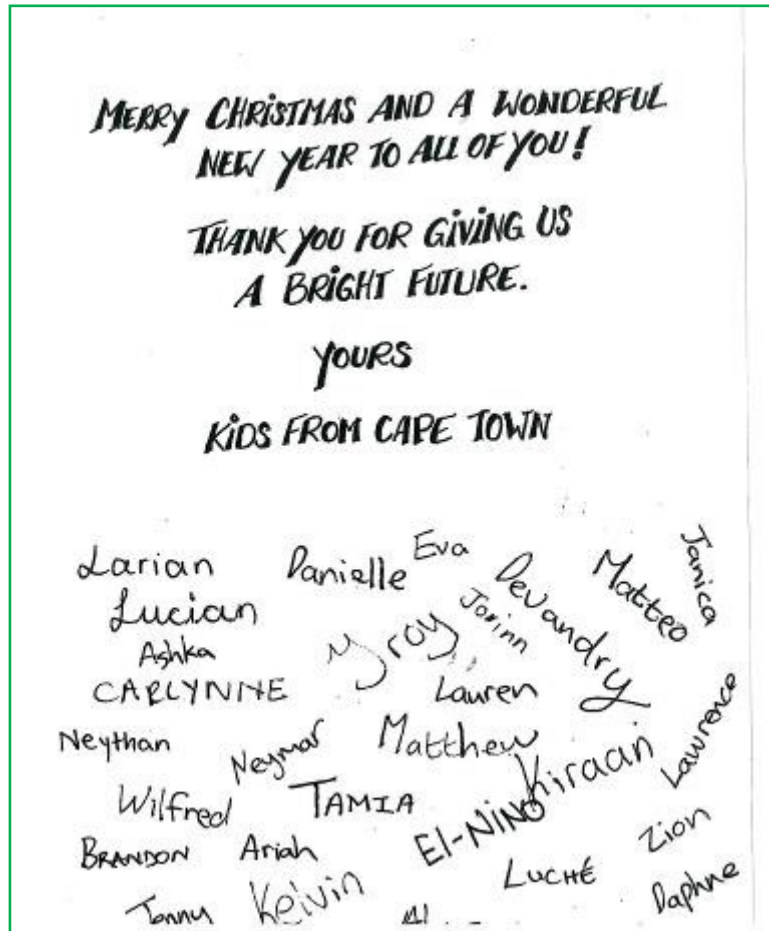 MERRY CHRISTMAS AND A WONDERFUL
NEW YEAR TO ALL OF YOU!
THANK YOU FOR GIVING US
A BRIGHT FUTURE.
YOURS
KIDS FROM CAPE TOWN
Larian Danielle Eva Devandry Matteo Janica
Lucian Jorinn
Ashka
CARLYNNE Lauren
Neythan Neymar Matthew Kiraan Lawrence
Wilfred TAMIA El-NINO
BRANDON Ariah LUCHÉ Zion
Keivin Daphne